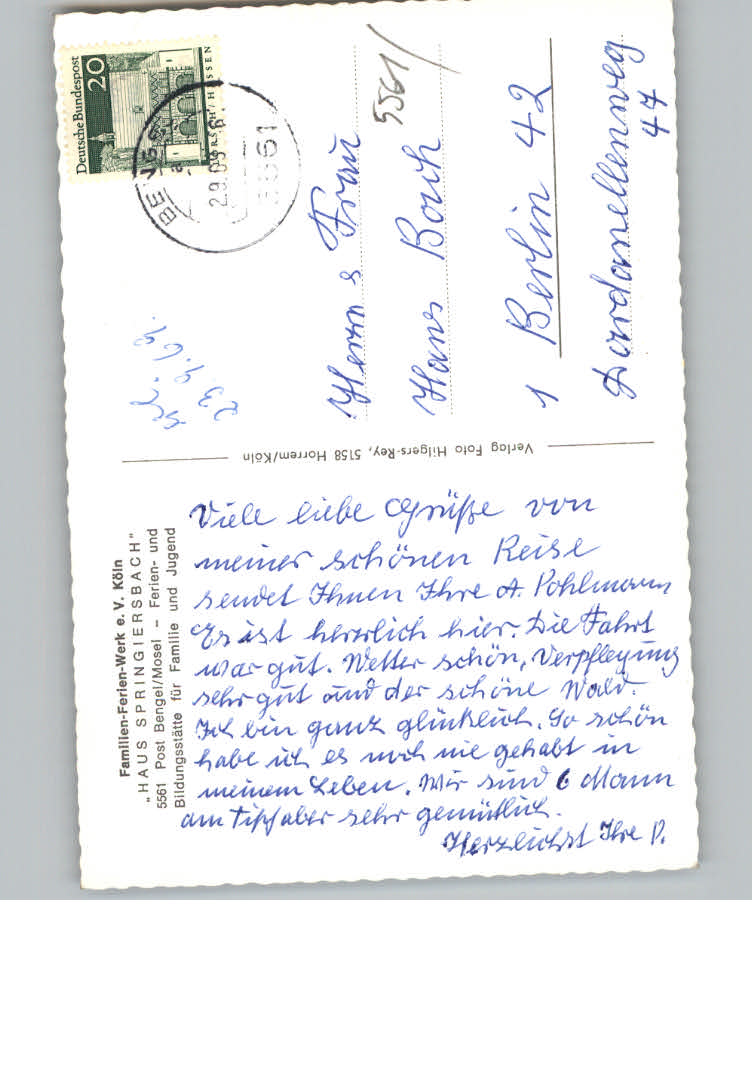 Familien-Ferien-Werk e. V. Köln
„HAUS SPRINGIERSBACH"
5561 Post Bengel/Mosel – Ferien- und
Bildungsstätte für Familie und Jugend
Viele liebe Grüße von
meiner schönen Reise
sendet Ihnen Ihre A. Pohlmann
Es ist herrlich hier. Die Fahrt
war gut. Wetter schön, Verpflegung
sehr gut und der schöne Wald.
Ich bin ganz glücklich. So schön
habe ich es noch nie gehabt in
meinem Leben. Wir sind 6 Mann
am Tisch aber sehr gemütlich.
Herzlichst Ihre P.
Verlag Foto Hilgers-Rey, 5158 Horrem/Köln
23.9.69.
Deutsche Bundespost
20
LORSCH / HESSEN
5561
5561/
Herrn & Frau
Hans Bach
1 Berlin 42
Dardanellenweg
47